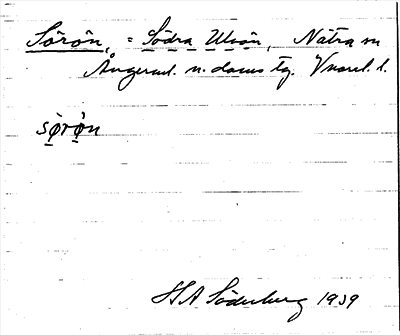 Sörön, = Södra Ulvön, Nätra sn
Ångerml. n. doms tg. Vnorrl. l.
sørøn
H A Söderberg 1939